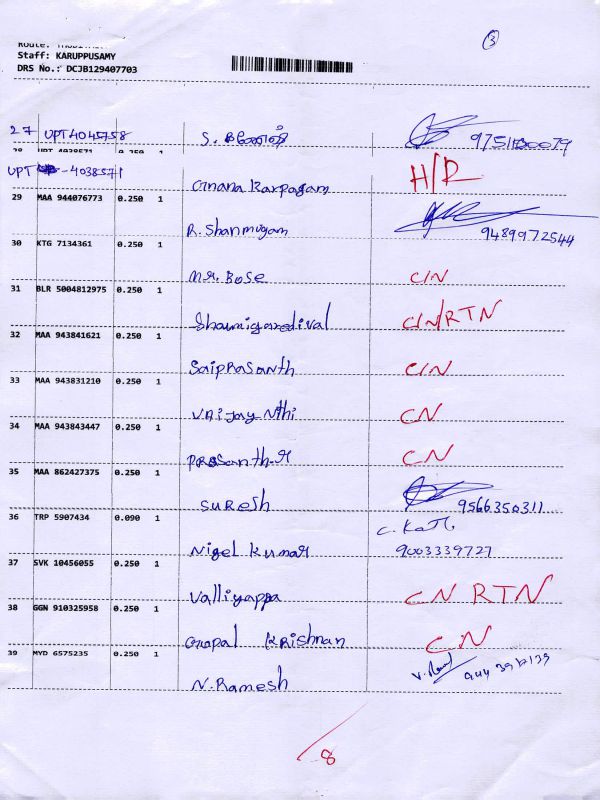 3
Staff: KARUPPUSAMY
DRS No.: DCJB129407703
27 UPT 4045758 S.
28 UPT 4038571 0.250 1
UPT -4038571 Gnana Karpagam H/R
29 MAA 944076773 0.250 1
R. Shanmugam 9489972544
30 KTG 7134361 0.250 1
Mr. Bose C/N
31 BLR 5004812975 0.250 1
C/N/RTN
32 MAA 943841621 0.250 1
Saiprasanth C/N
33 MAA 943831210 0.250 1
CN
34 MAA 943843447 0.250 1
Prasanth.R CN
35 MAA 862427375 0.250 1
Suresh 9566350311
36 TRP 5907434 0.090 1
Nigel Kumar 9003339727
37 SVK 10456055 0.250 1
Valliyappa CN RTN
38 GGN 910325958 0.250 1
Gopal Krishnan CN
39 MYD 6575235 0.250 1
N.Ramesh
8